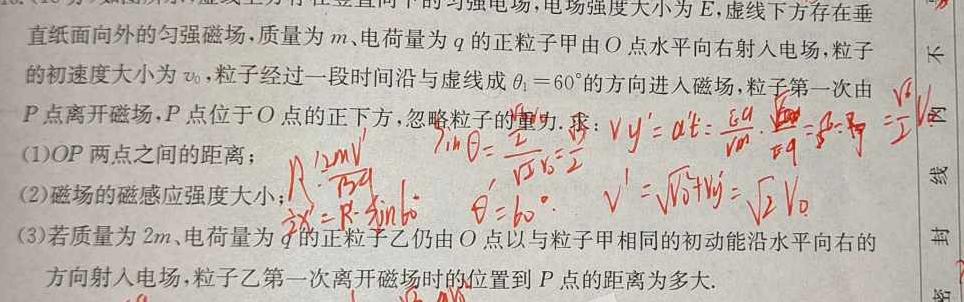 的匀强电场,电场强度大小为E,虚线下方存在垂
直纸面向外的匀强磁场.质量为m、电荷量为q的正粒子甲由O点水平向右射入电场,粒子 不
的初速度大小为v₀,粒子经过一段时间沿与虚线成θ₁=60°的方向进入磁场,粒子第一次由
P点离开磁场,P点位于O点的正下方,忽略粒子的重力.求:
(1)OP两点之间的距离;
(2)磁场的磁感应强度大小; 线
θ'=60°. v'=√v₀²+vy'²=√2 v₀
(3)若质量为2m、电荷量为q的正粒子乙仍由O点以与粒子甲相同的初动能沿水平向右的 封
方向射入电场,粒子乙第一次离开磁场时的位置到P点的距离为多大.